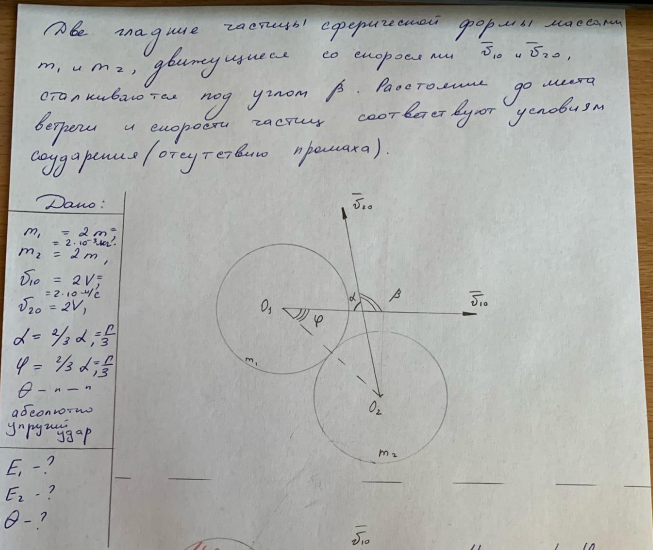 Две гладкие частицы сферической формы массами
m₁ и m₂, движущиеся со скоростями v̄₁₀ и v̄₂₀,
сталкиваются под углом β. Расстояние до места
встречи и скорости частиц соответствуют условиям
соударения (отсутствию промаха).
Дано:
m₁ = 2m =
= 2·10⁻³кг.
m₂ = 2m,
v₁₀ = 2V₁=
=2·10 м/с
v₂₀ = 2V,
α = 2/3 α₁=π/3
φ = 2/3 α₁=π/3
θ – " – "
абсолютно
упругий
удар
E₁ - ?
E₂ - ?
θ - ?
v̄₂₀
O₁
φ
α
β
v̄₁₀
m₁
O₂
m₂
v̄₁₀